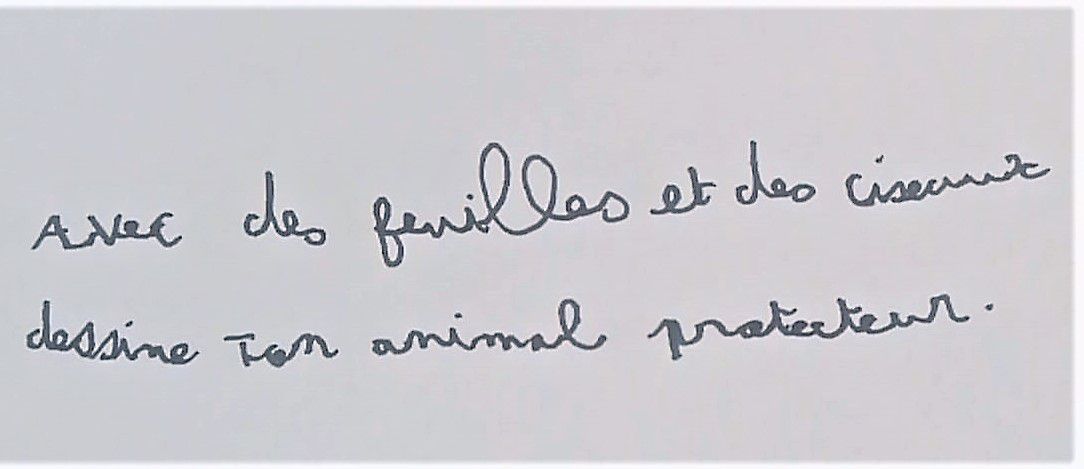 Avec des feuilles et des ciseaux
dessine ton animal protecteur.